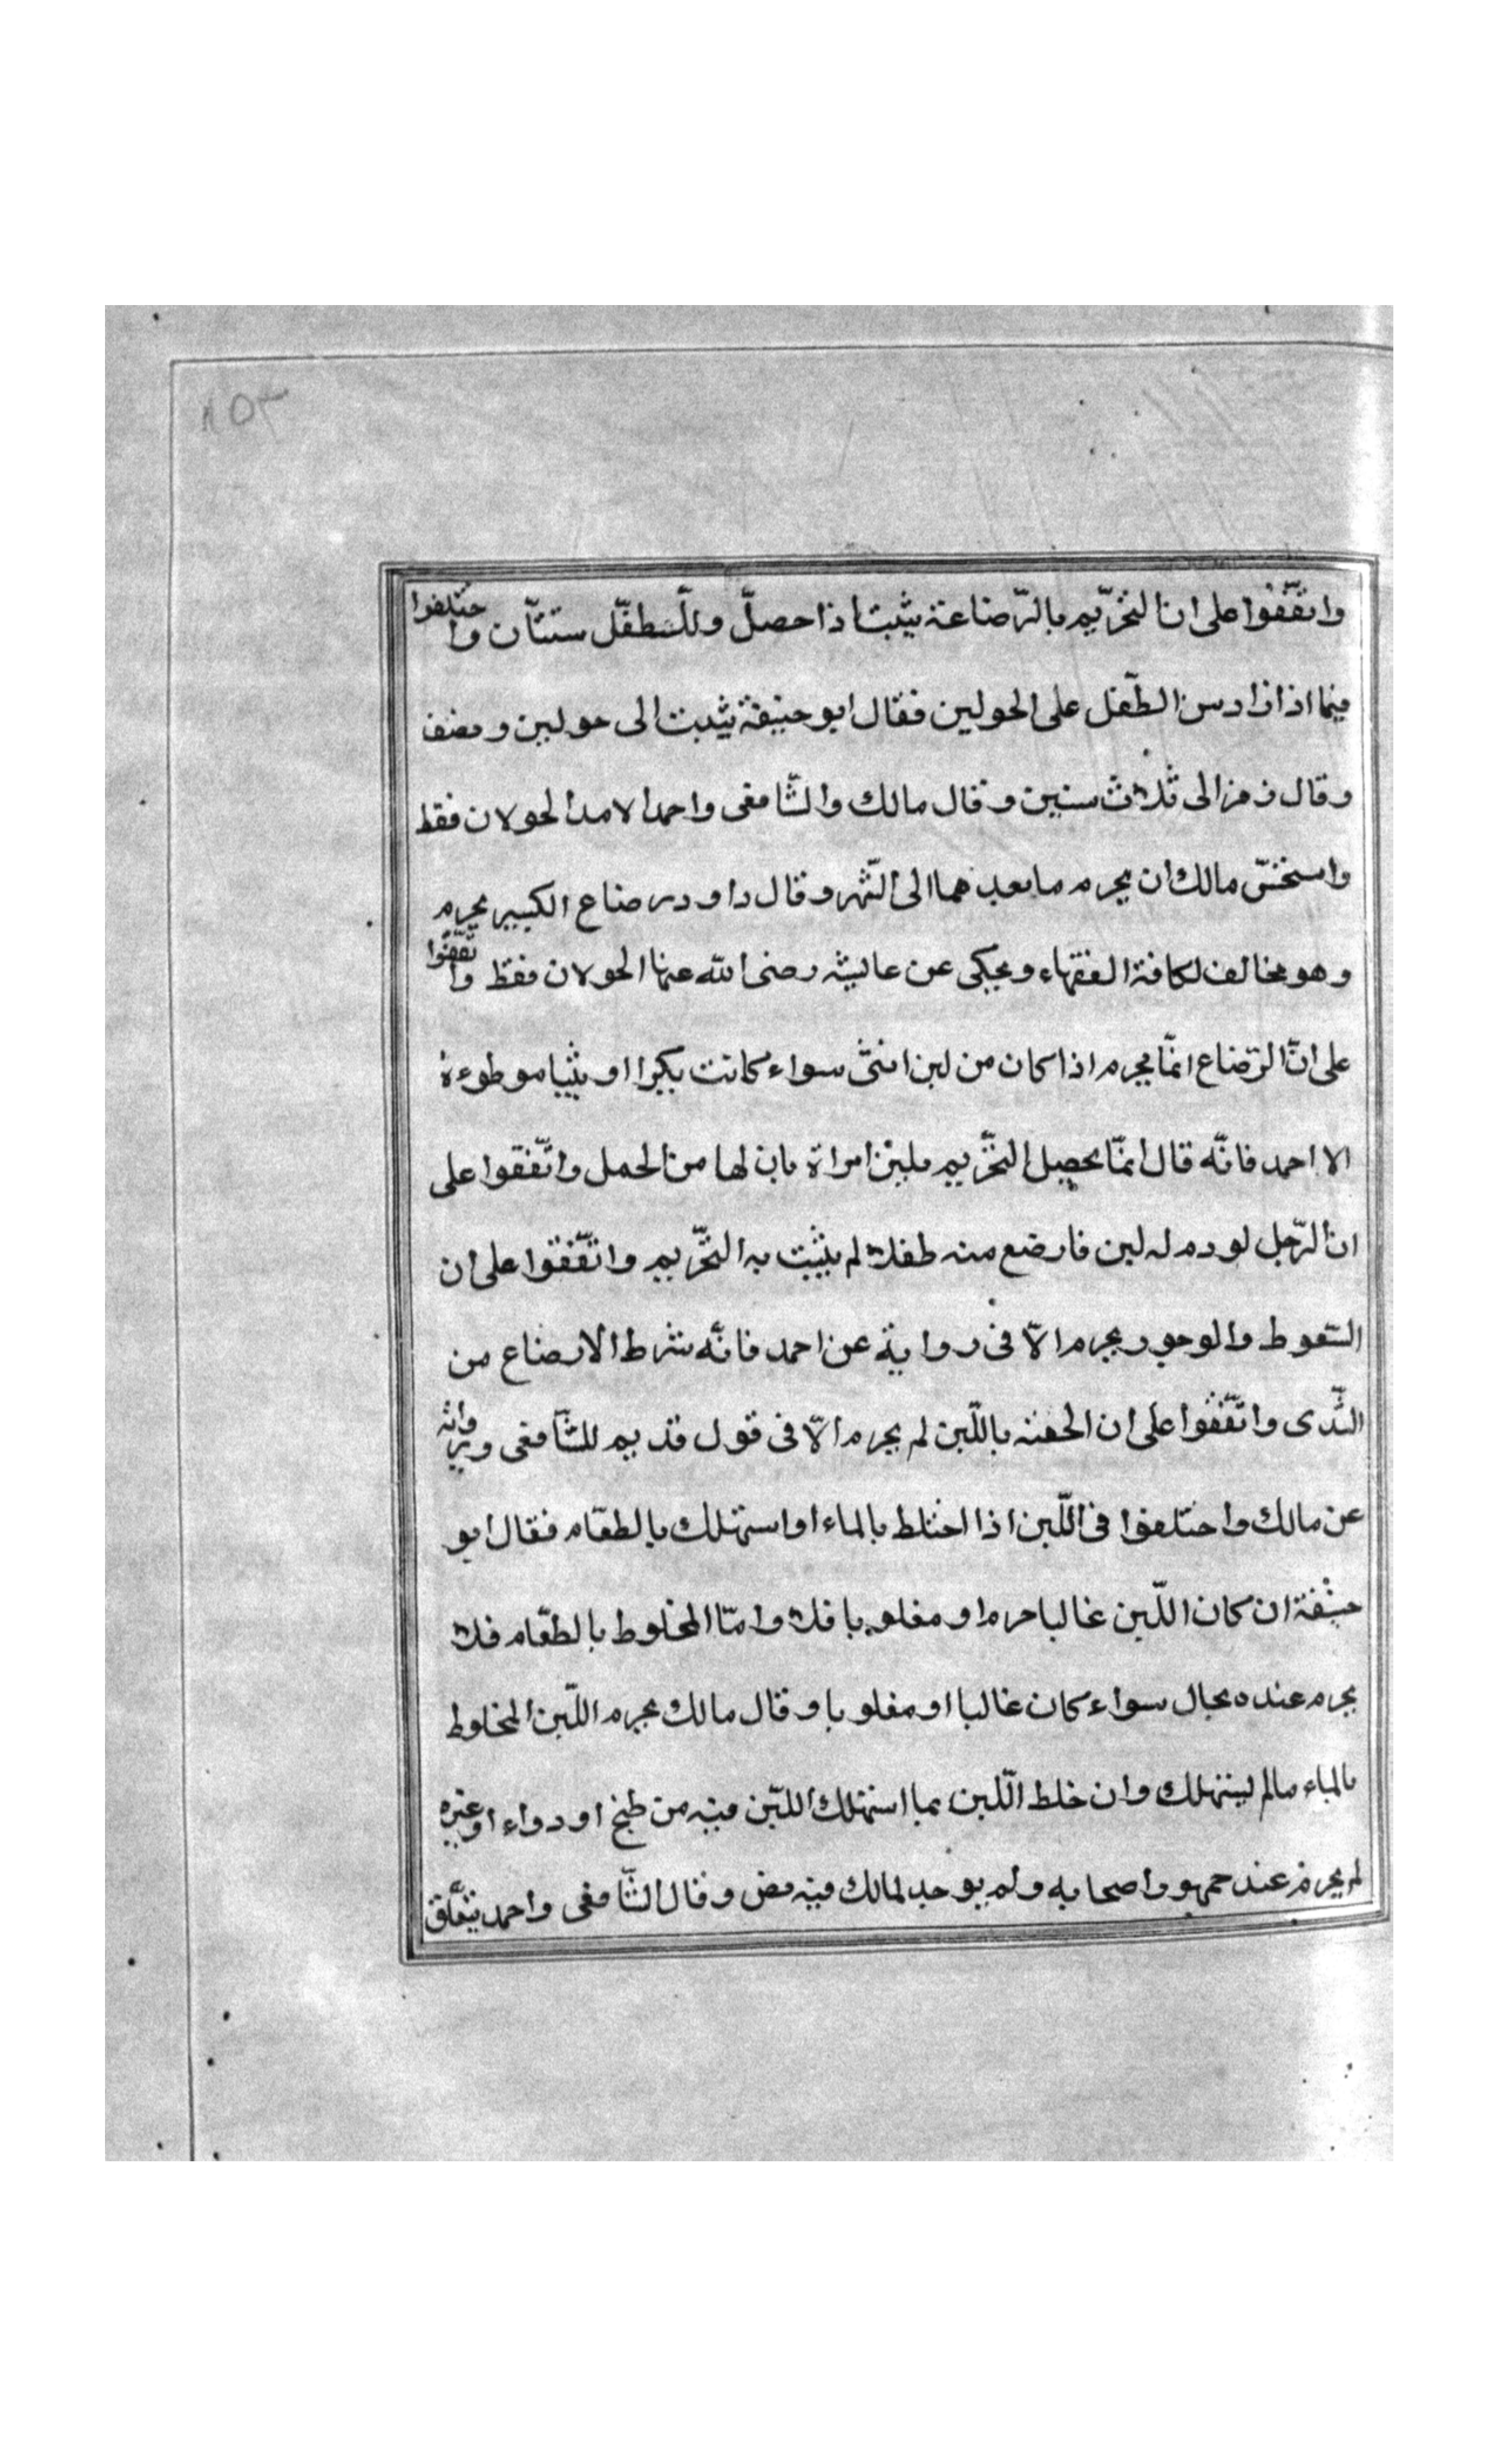 ١٥٣
واتفقوا على ان التحريم بالرضاعة يثبت اذا حصل وللطفل سنتان واختلفوا
فيما اذا زاد سن الطفل على الحولين فقال ابو حنيفة يثبت الى حولين ونصف
وقال زفر الى ثلاث سنين وقال مالك والشافعى واحمد الامد الحولان فقط
واستحسن مالك ان يحرم ما بعدهما الى الشهر وقال داود رضاع الكبير يحرم
وهو مخالف لكافة الفقهاء ويحكى عن عايشه رضى الله عنها الحولان فقط واتفقوا
على ان الرضاع انما يحرم اذا كان من لبن انثى سواء كانت بكرا او ثيبا موطوءة
الا احمد فانه قال انما يحصل التحريم بلبن امراة بان لها من الحمل واتفقوا على
ان الرجل لو در له لبن فارضع منه طفلا لم يثبت به التحريم واتفقوا على ان
السعوط والوجور يحرم الا فى رواية عن احمد فانه شرط الارضاع من
الثدى واتفقوا على ان الحقنه باللبن لم يحرم الا فى قول قديم للشافعى ورواية
عن مالك واختلفوا فى اللبن اذا اختلط بالماء او استهلك بالطعام فقال ابو
حنيفة ان كان اللبن غالبا حرم او مغلوبا فلا واما المخلوط بالطعام فلا
يحرم عنده بحال سواء كان غالبا او مغلوبا وقال مالك يحرم اللبن المخلوط
بالماء مالم يستهلك وان خلط اللبن بما استهلك اللبن فيه من طبخ او دواء او غيره
لم يحرم عند جمهور اصحابه ولم يوجد لمالك فيه نص وقال الشافعى واحمد يتعلق